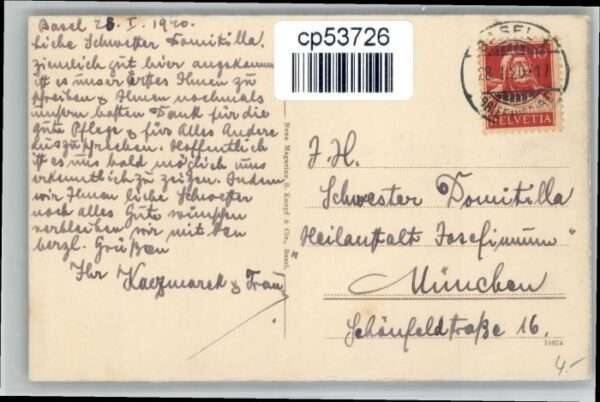 cp53726
Basel 28. I. 1920.
Liebe Schwester Domitilla.
Ziemlich gut hier angekommen
ist es unser erstes Ihnen zu
schreiben & Ihnen nochmals
unsern besten Dank für die
gute Pflege & fürs Alles Andere
auszusprechen. Hoffentlich
ist es uns bald möglich uns
erkenntlich zu zeigen. Indem
wir Ihnen liebe Schwester
noch alles Gute wünschen
verbleiben wir mit den
herzl. Grüßen
Ihr Kaczmarek & Frau
Neue Magazine R. Knopf & Cie., Basel.
BASEL
28.I.20.-17
10
HELVETIA
J. H.
Schwester Domitilla
Heilanstalt Josefinum"
München
Schönfeldstraße 16.
4.-